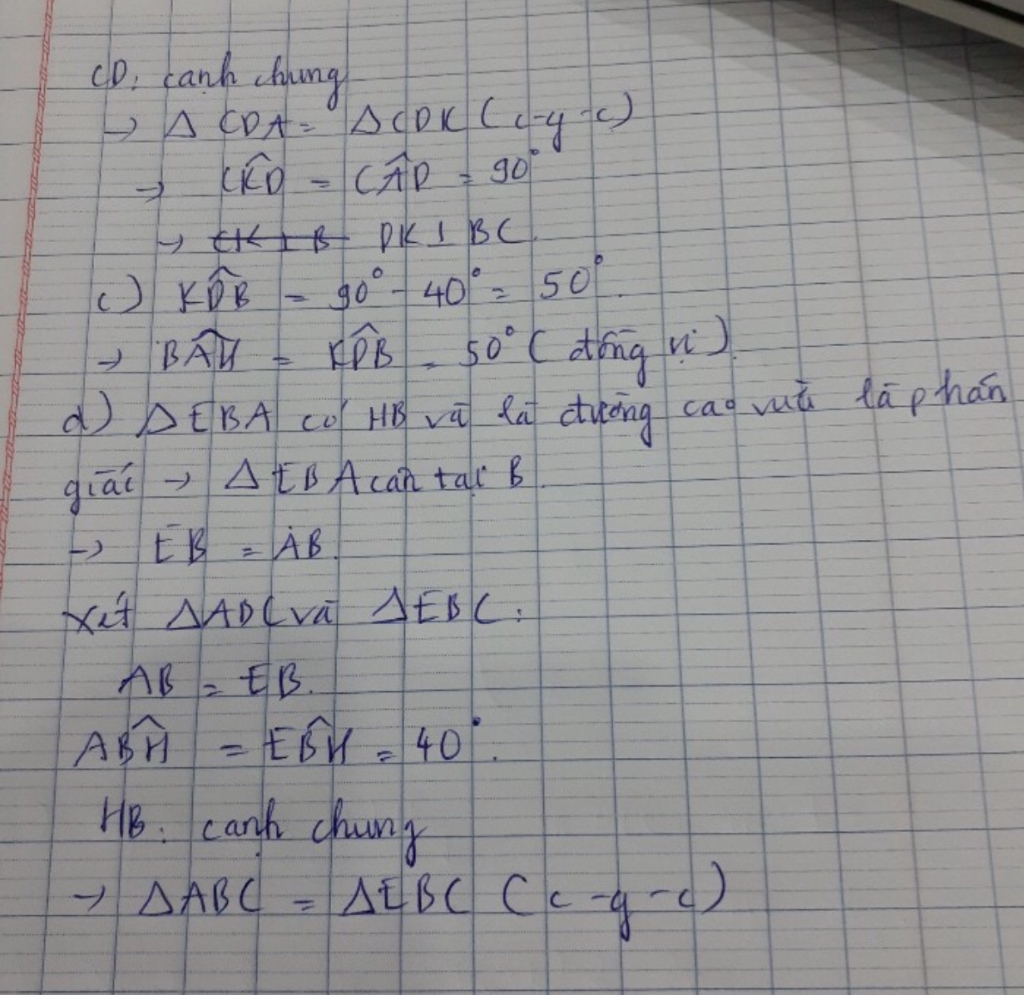 CD: cạnh chung
→ Δ CDA = ΔCDK (c-g-c)
→ CK̂D = CÂD = 90°
→ DK ⊥ BC.
c) KD̂B = 90° - 40° = 50°.
→ BÂH = KD̂B = 50° (đồng vị)
d) ΔEBA có HB và là đường cao vừa là phân
giác → ΔEBA cân tại B
→ EB = AB.
Xét ΔADC và ΔEBC:
AB = EB.
AB̂H = EB̂H = 40°.
HB: cạnh chung
→ ΔABC = ΔEBC (c-g-c)